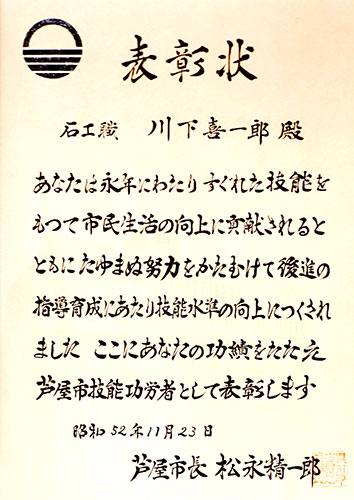 表彰状
石工職 川下喜一郎 殿
あなたは永年にわたりすぐれた技能を
もつて市民生活の向上に貢献されると
ともにたゆまぬ努力をかたむけて後進の
指導育成にあたり技能水準の向上につくされ
ました ここにあなたの功績をたたえ
芦屋市技能功労者として表彰します
昭和52年11月23日
芦屋市長 松永精一郎